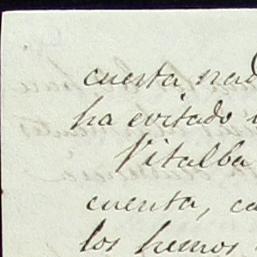 cuesta nad
ha evitado
Vitalba
cuenta, ca
los hemos